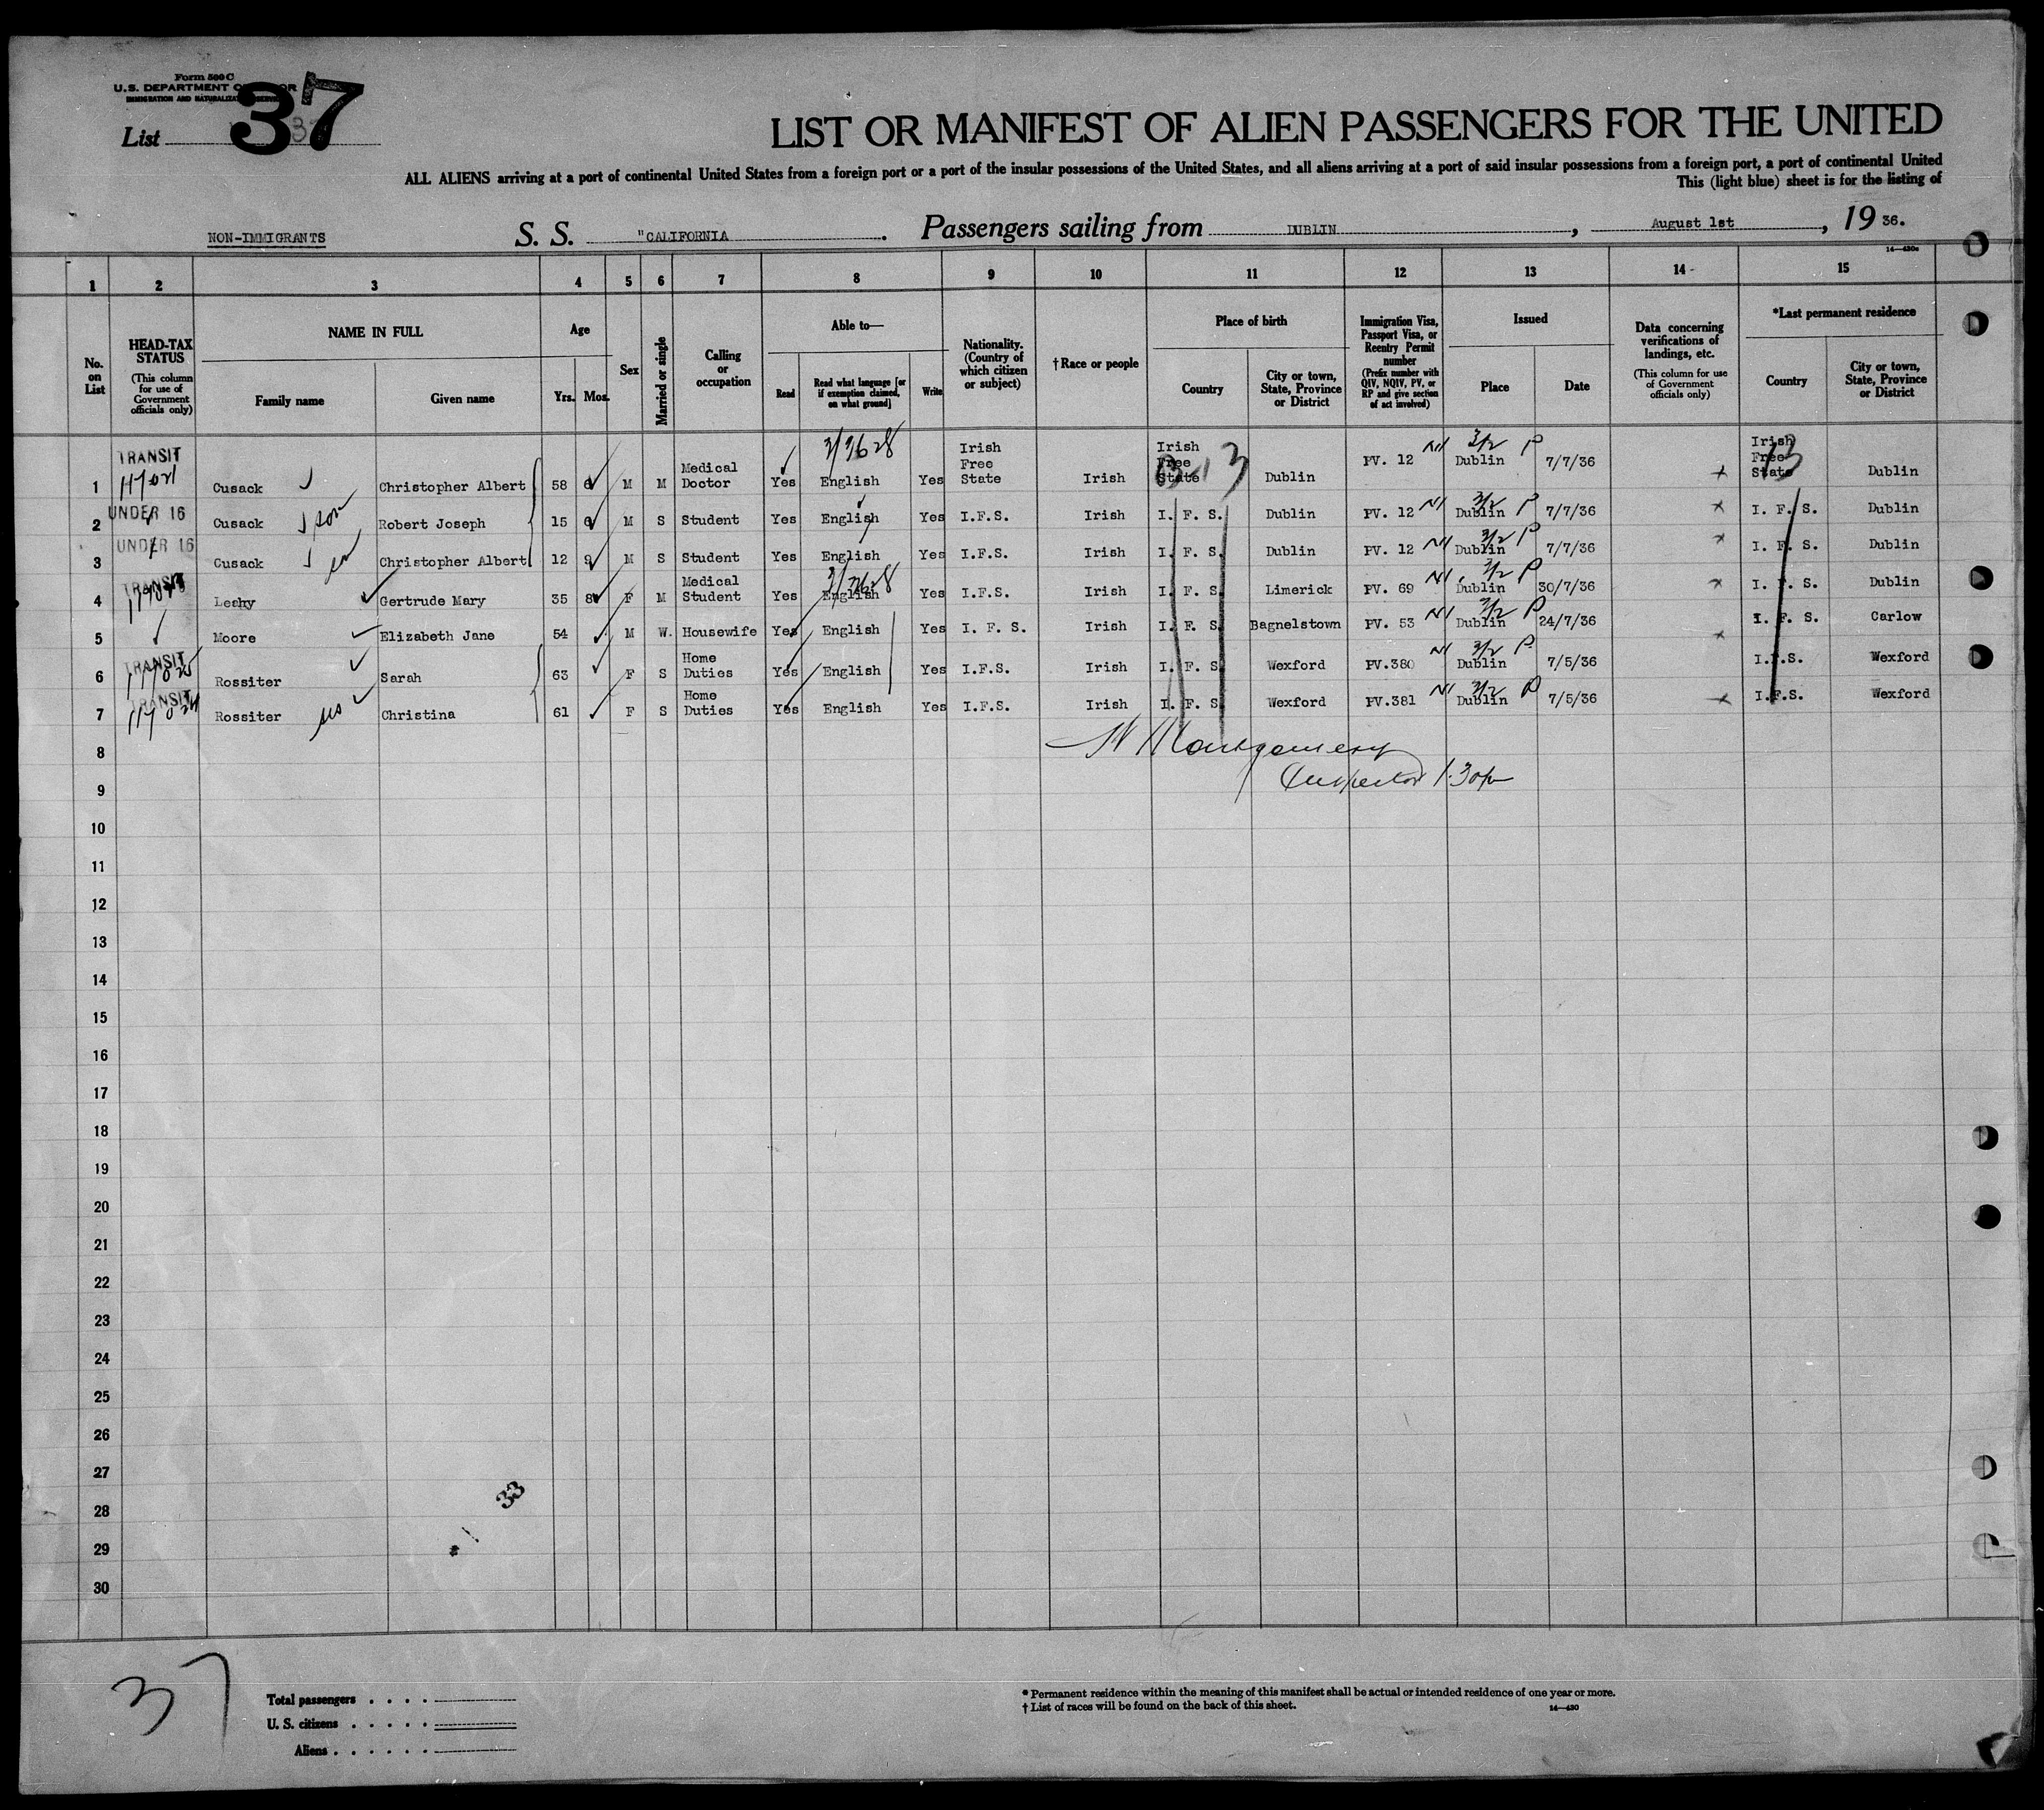 Form 500 C
U.S. DEPARTMENT OF LABOR
IMMIGRATION AND NATURALIZATION SERVICE
List 37
LIST OR MANIFEST OF ALIEN PASSENGERS FOR THE UNITED
ALL ALIENS arriving at a port of continental United States from a foreign port or a port of the insular possessions of the United States, and all aliens arriving at a port of said insular possessions from a foreign port, a port of continental United
This (light blue) sheet is for the listing of
NON-IMMIGRANTS S. S. "CALIFORNIA. Passengers sailing from DUBLIN, August 1st, 19 36.
14—430c
1 2 3 4 5 6 7 8 9 10 11 12 13 14 15
No. on List
HEAD-TAX STATUS (This column for use of Government officials only)
NAME IN FULL
Family name Given name
Age
Yrs. Mos.
Sex
Married or single
Calling or occupation
Able to—
Read Read what language [or if exemption claimed, on what ground] Write
Nationality. (Country of which citizen or subject)
†Race or people
Place of birth
Country City or town, State, Province or District
Immigration Visa, Passport Visa, or Reentry Permit number (Prefix number with QIV, NQIV, PV, or RP and give section of act involved)
Issued
Place Date
Data concerning verifications of landings, etc. (This column for use of Government officials only)
*Last permanent residence
Country City or town, State, Province or District
1 TRANSIT Cusack Christopher Albert 58 6 M M Medical Doctor Yes English Yes Irish Free State Irish Irish Free State Dublin PV. 12 NI 3/2 P Dublin 7/7/36 Irish Free State Dublin
2 UNDER 16 Cusack son Robert Joseph 15 6 M S Student Yes English Yes I.F.S. Irish I. F. S. Dublin PV. 12 NI 3/2 P Dublin 7/7/36 I. F. S. Dublin
3 UNDER 16 Cusack Christopher Albert 12 9 M S Student Yes English Yes I.F.S. Irish I. F. S. Dublin PV. 12 NI 3/2 P Dublin 7/7/36 I. F. S. Dublin
4 TRANSIT Leahy Gertrude Mary 35 8 F M Medical Student Yes English Yes I.F.S. Irish I. F. S. Limerick PV. 69 NI 3/2 P Dublin 30/7/36 I. F. S. Dublin
5 Moore Elizabeth Jane 54 M W. Housewife Yes English Yes I. F. S. Irish I. F. S. Bagnelstown PV. 53 NI 3/2 P Dublin 24/7/36 I. F. S. Carlow
6 TRANSIT Rossiter Sarah 63 F S Home Duties Yes English Yes I.F.S. Irish I. F. S. Wexford PV.380 NI 3/2 P Dublin 7/5/36 I.F.S. Wexford
7 TRANSIT Rossiter sis Christina 61 F S Home Duties Yes English Yes I.F.S. Irish I. F. S. Wexford PV.381 NI 3/2 P Dublin 7/5/36 I.F.S. Wexford
8 Montgomery
9 Inspector 1.30p
10
11
12
13
14
15
16
17
18
19
20
21
22
23
24
25
26
27
28 33
29
30
37
Total passengers . . . .
U. S. citizens . . . . .
Aliens . . . . . .
* Permanent residence within the meaning of this manifest shall be actual or intended residence of one year or more.
† List of races will be found on the back of this sheet. 14—430